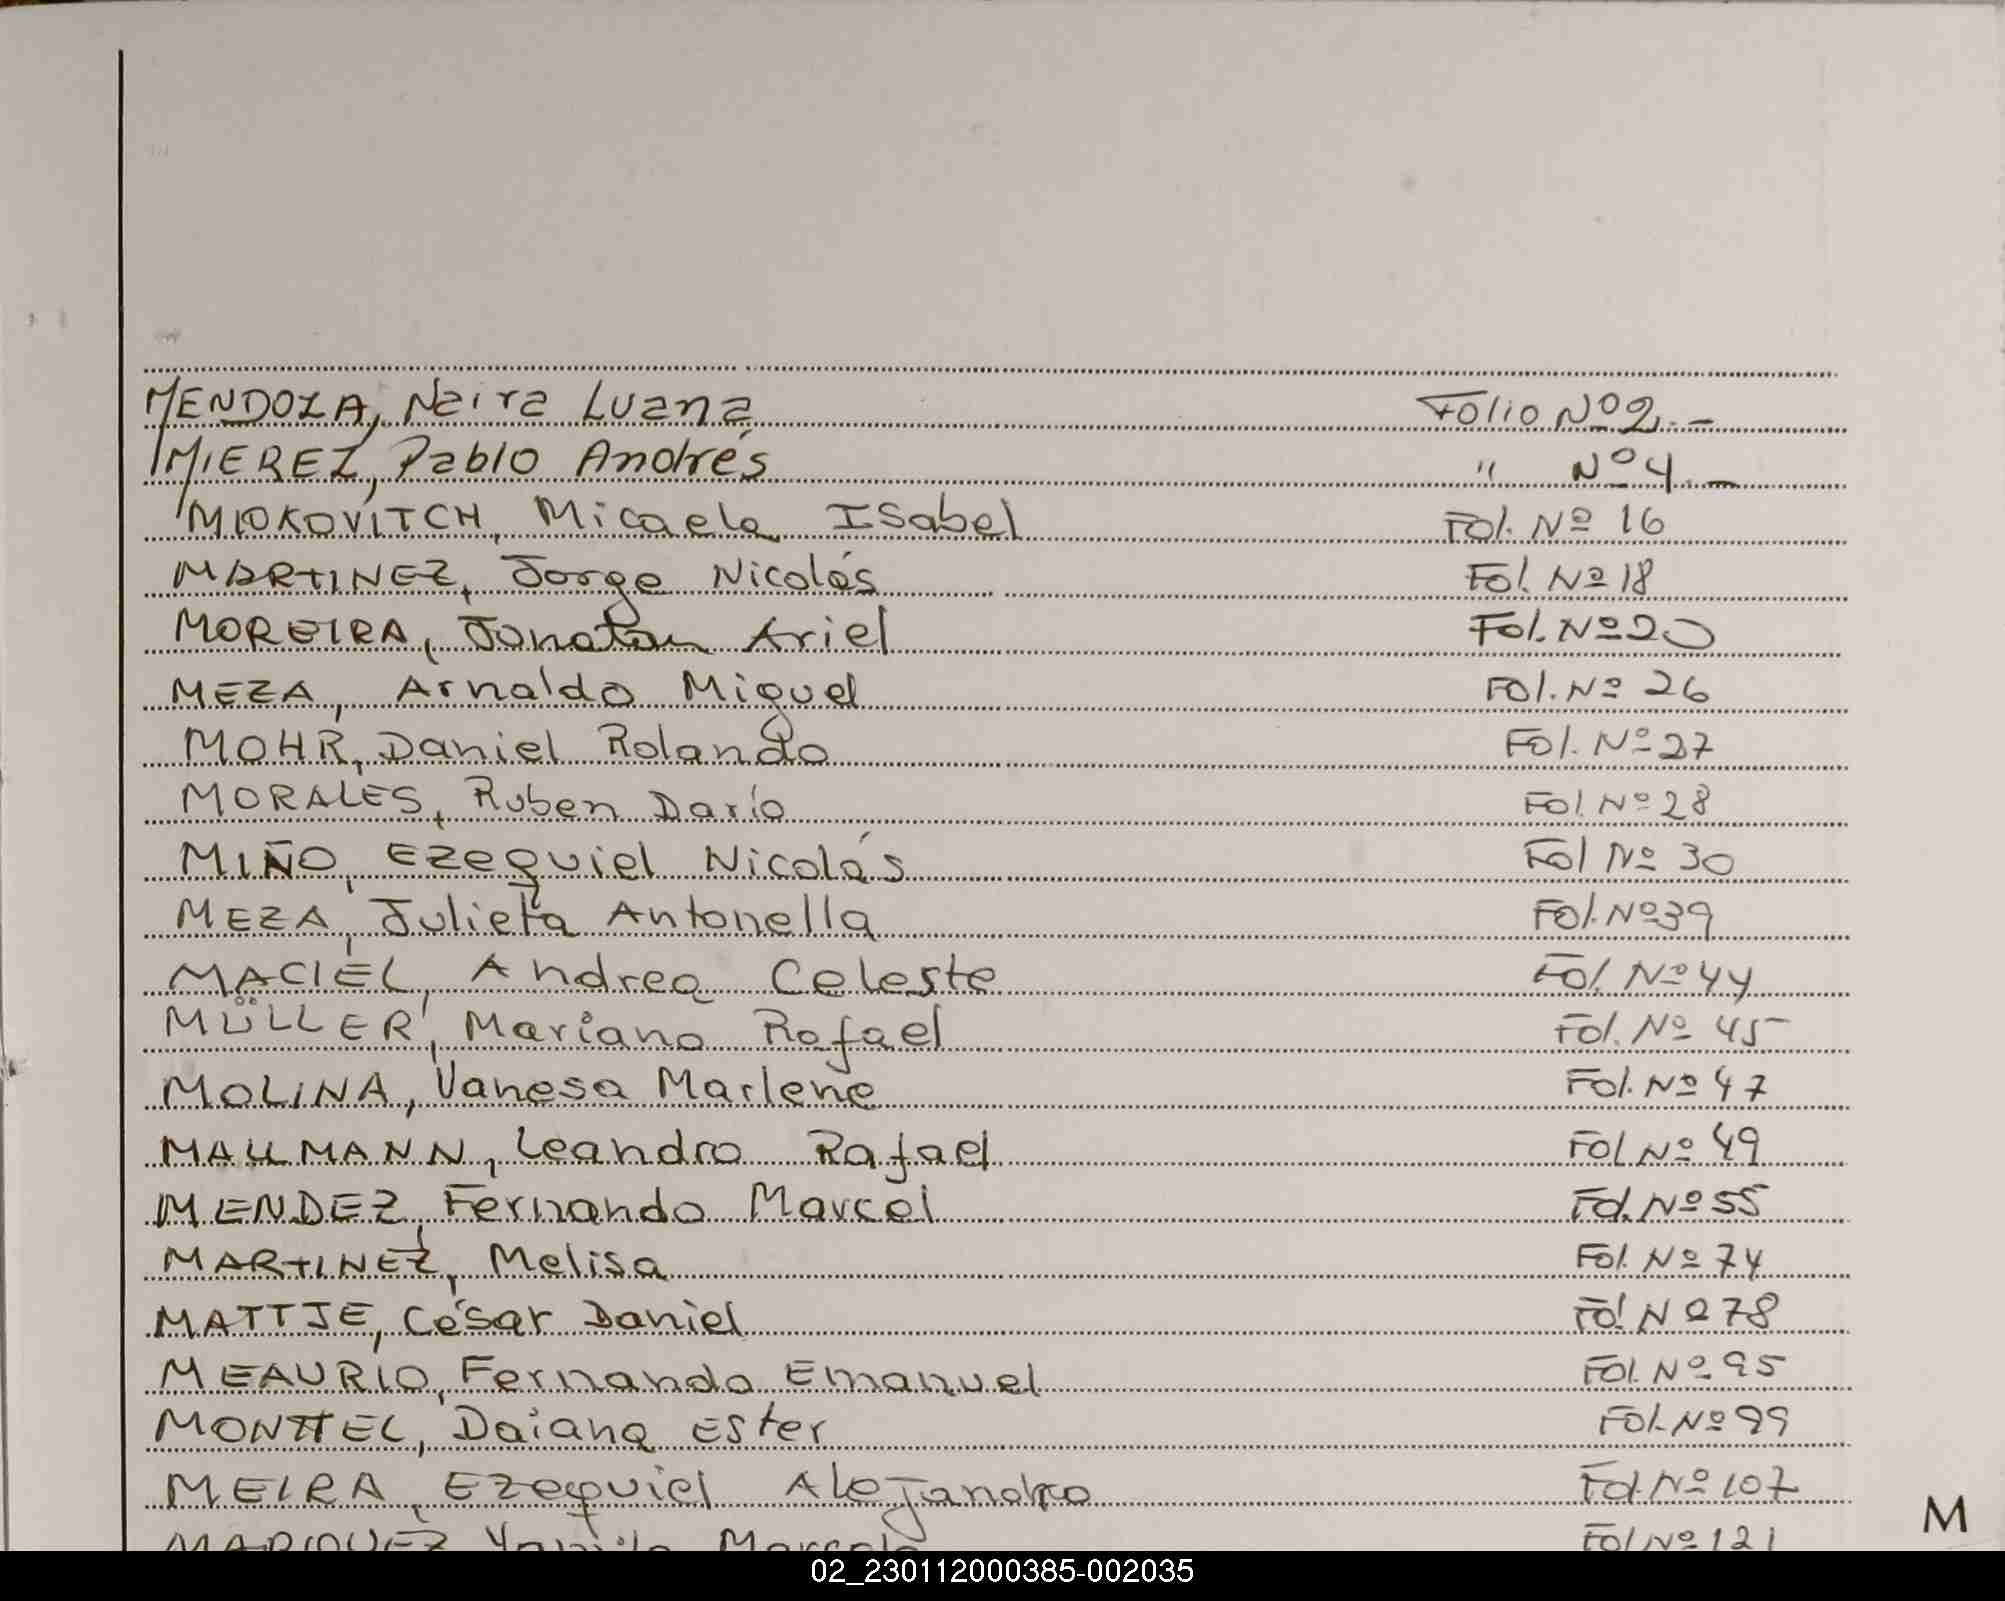 MENDOZA, Naira Luana Folio Nº 2.-
MIEREZ, Pablo Andrés " Nº 4.-
MIOKOVITCH, Micaela Isabel Fol. Nº 16
MARTINEZ, Jorge Nicolás Fol. Nº 18
MOREIRA, Jonatan Ariel Fol. Nº 20
MEZA, Arnaldo Miguel Fol. Nº 26
MOHR, Daniel Rolando Fol. Nº 27
MORALES, Ruben Darío Fol. Nº 28
MIÑO, Ezequiel Nicolás Fol Nº 30
MEZA, Julieta Antonella Fol. Nº 39
MACIEL, Andrea Celeste Fol. Nº 44
MÜLLER, Mariano Rafael Fol. Nº 45
MOLINA, Vanesa Marlene Fol. Nº 47
MALLMANN, Leandro Rafael Fol Nº 49
MENDEZ, Fernando Marcel Fol. Nº 55
MARTINEZ, Melisa Fol. Nº 74
MATTJE, César Daniel Fol. Nº 78
MEAURIO, Fernando Emanuel Fol. Nº 95
MONTTEL, Daiana Ester Fol. Nº 99
MEIRA, Ezequiel Alejandro Fol. Nº 107
Fol Nº 121
M
02_230112000385-002035